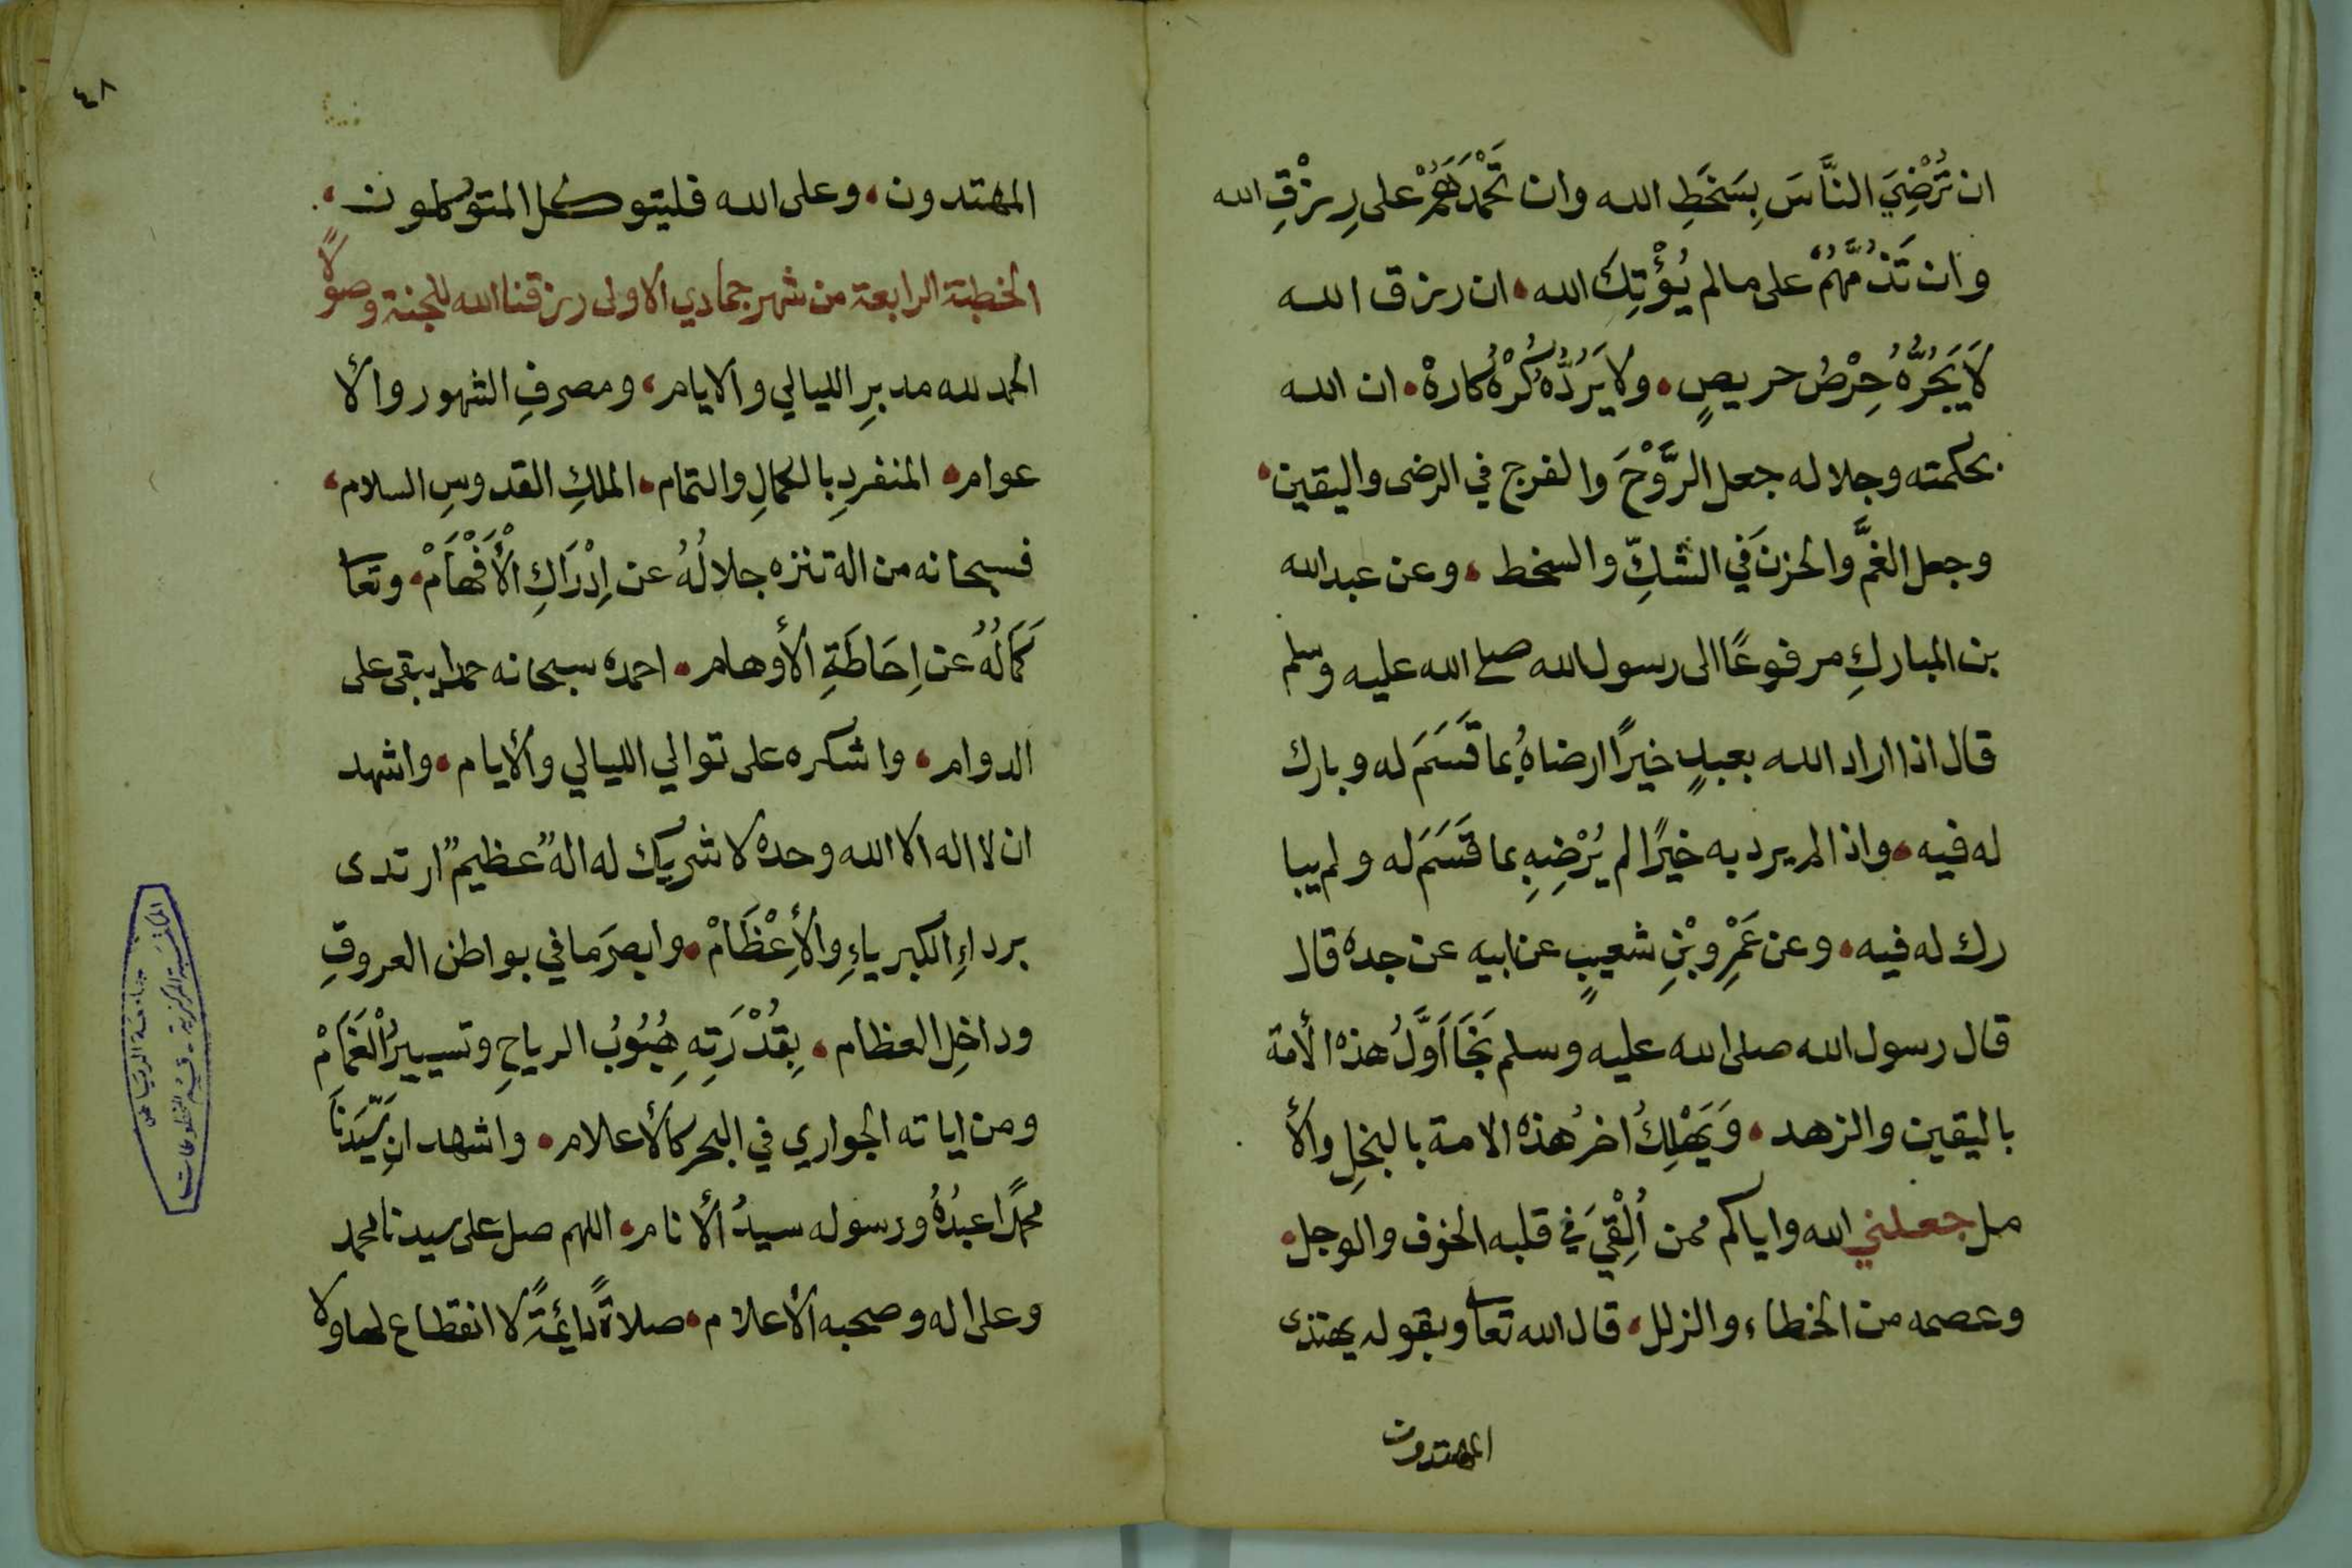 ان تُرْضِيَ النَّاسَ بِسَخَطِ الله وان تَحْمَدَهُمْ على رِزْقِ الله
وان تَذُمَّهُمْ على مالم يُؤْتِكَ الله، ان رزق الله
لَا يَجُرُّهُ حِرْصُ حريصٍ، ولا يَرُدُّهُ كُرْهُ كارهْ، ان الله
بحكمته وجلاله جعل الرَّوْحَ والفرج في الرضى واليقين،
وجعل الغمَّ والحزنَ في الشكِّ والسخط، وعن عبدالله
بن المباركِ مرفوعًا الى رسول الله صلى الله عليه وسلم
قال اذا اراد الله بعبدٍ خيرًا ارضاهُ بما قَسَمَ له وبارك
له فيه، واذا لم يرد به خيرًا لم يُرْضِهِ بما قَسَمَ له ولم يبا
رك له فيه، وعن عَمْرِوبْنِ شعيبٍ عن ابيه عن جده قال
قال رسول الله صلى الله عليه وسلم نَجَا اَوَّلُ هذه الأمة
باليقين والزهد، وَيَهْلِكُ اخرُ هذه الامة بالبخلِ والأ
مل جعلني الله واياكم ممن اُلْقِيَ في قلبه الخوف والوجل،
وعصمه من الخطاء والزلل، قال الله تعا وبقوله يهتدى
المهتدون
٤٨
المهتدون، وعلى الله فليتوكل المتوكلون،
الخطبة الرابعة من شهر جمادي الاولى رزقنا الله للجنة وصولًا
الحمد لله مدبرِ الليالي والايام، ومصرفِ الشهور والأ
عوام، المنفردِ بالكمالِ والتمام، الملكِ القدوسِ السلام،
فسبحانه من اله تنزه جلالُهُ عن اِدْرَاكِ الْأَفْهَامْ، وتعا
كَمَالُهُ عن اِحَاطَةِ الأوهام، احمده سبحانه حمدا يبقى على
الدوام، واشكره على توالي الليالي والأيام، واشهد
ان لا اله الا الله وحده لا شريك له الهٌ عظيمٌ ارتدى
برداءِ الكبرياءِ والأِعْظَامْ، وابصرَ ما في بواطن العروقِ
وداخلِ العظام، بِقُدْرَتِهِ هُبُوبُ الرياحِ وتسييرُ الْغَمَامْ
ومن اياته الجواري في البحر كالأعلام، واشهد ان سَيِّدَنَا
محمدًا عبدُهُ ورسوله سيدُ الأنام، اللهم صل على سيدنا محمد
وعلى اله وصحبه الأعلام، صلاةً دائمةً لا انقطاع لها ولا
جامعة الرياض
المكتبة المركزية - قسم المخطوطات